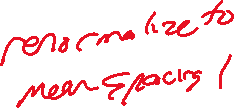 renormalize to
mean spacing 1